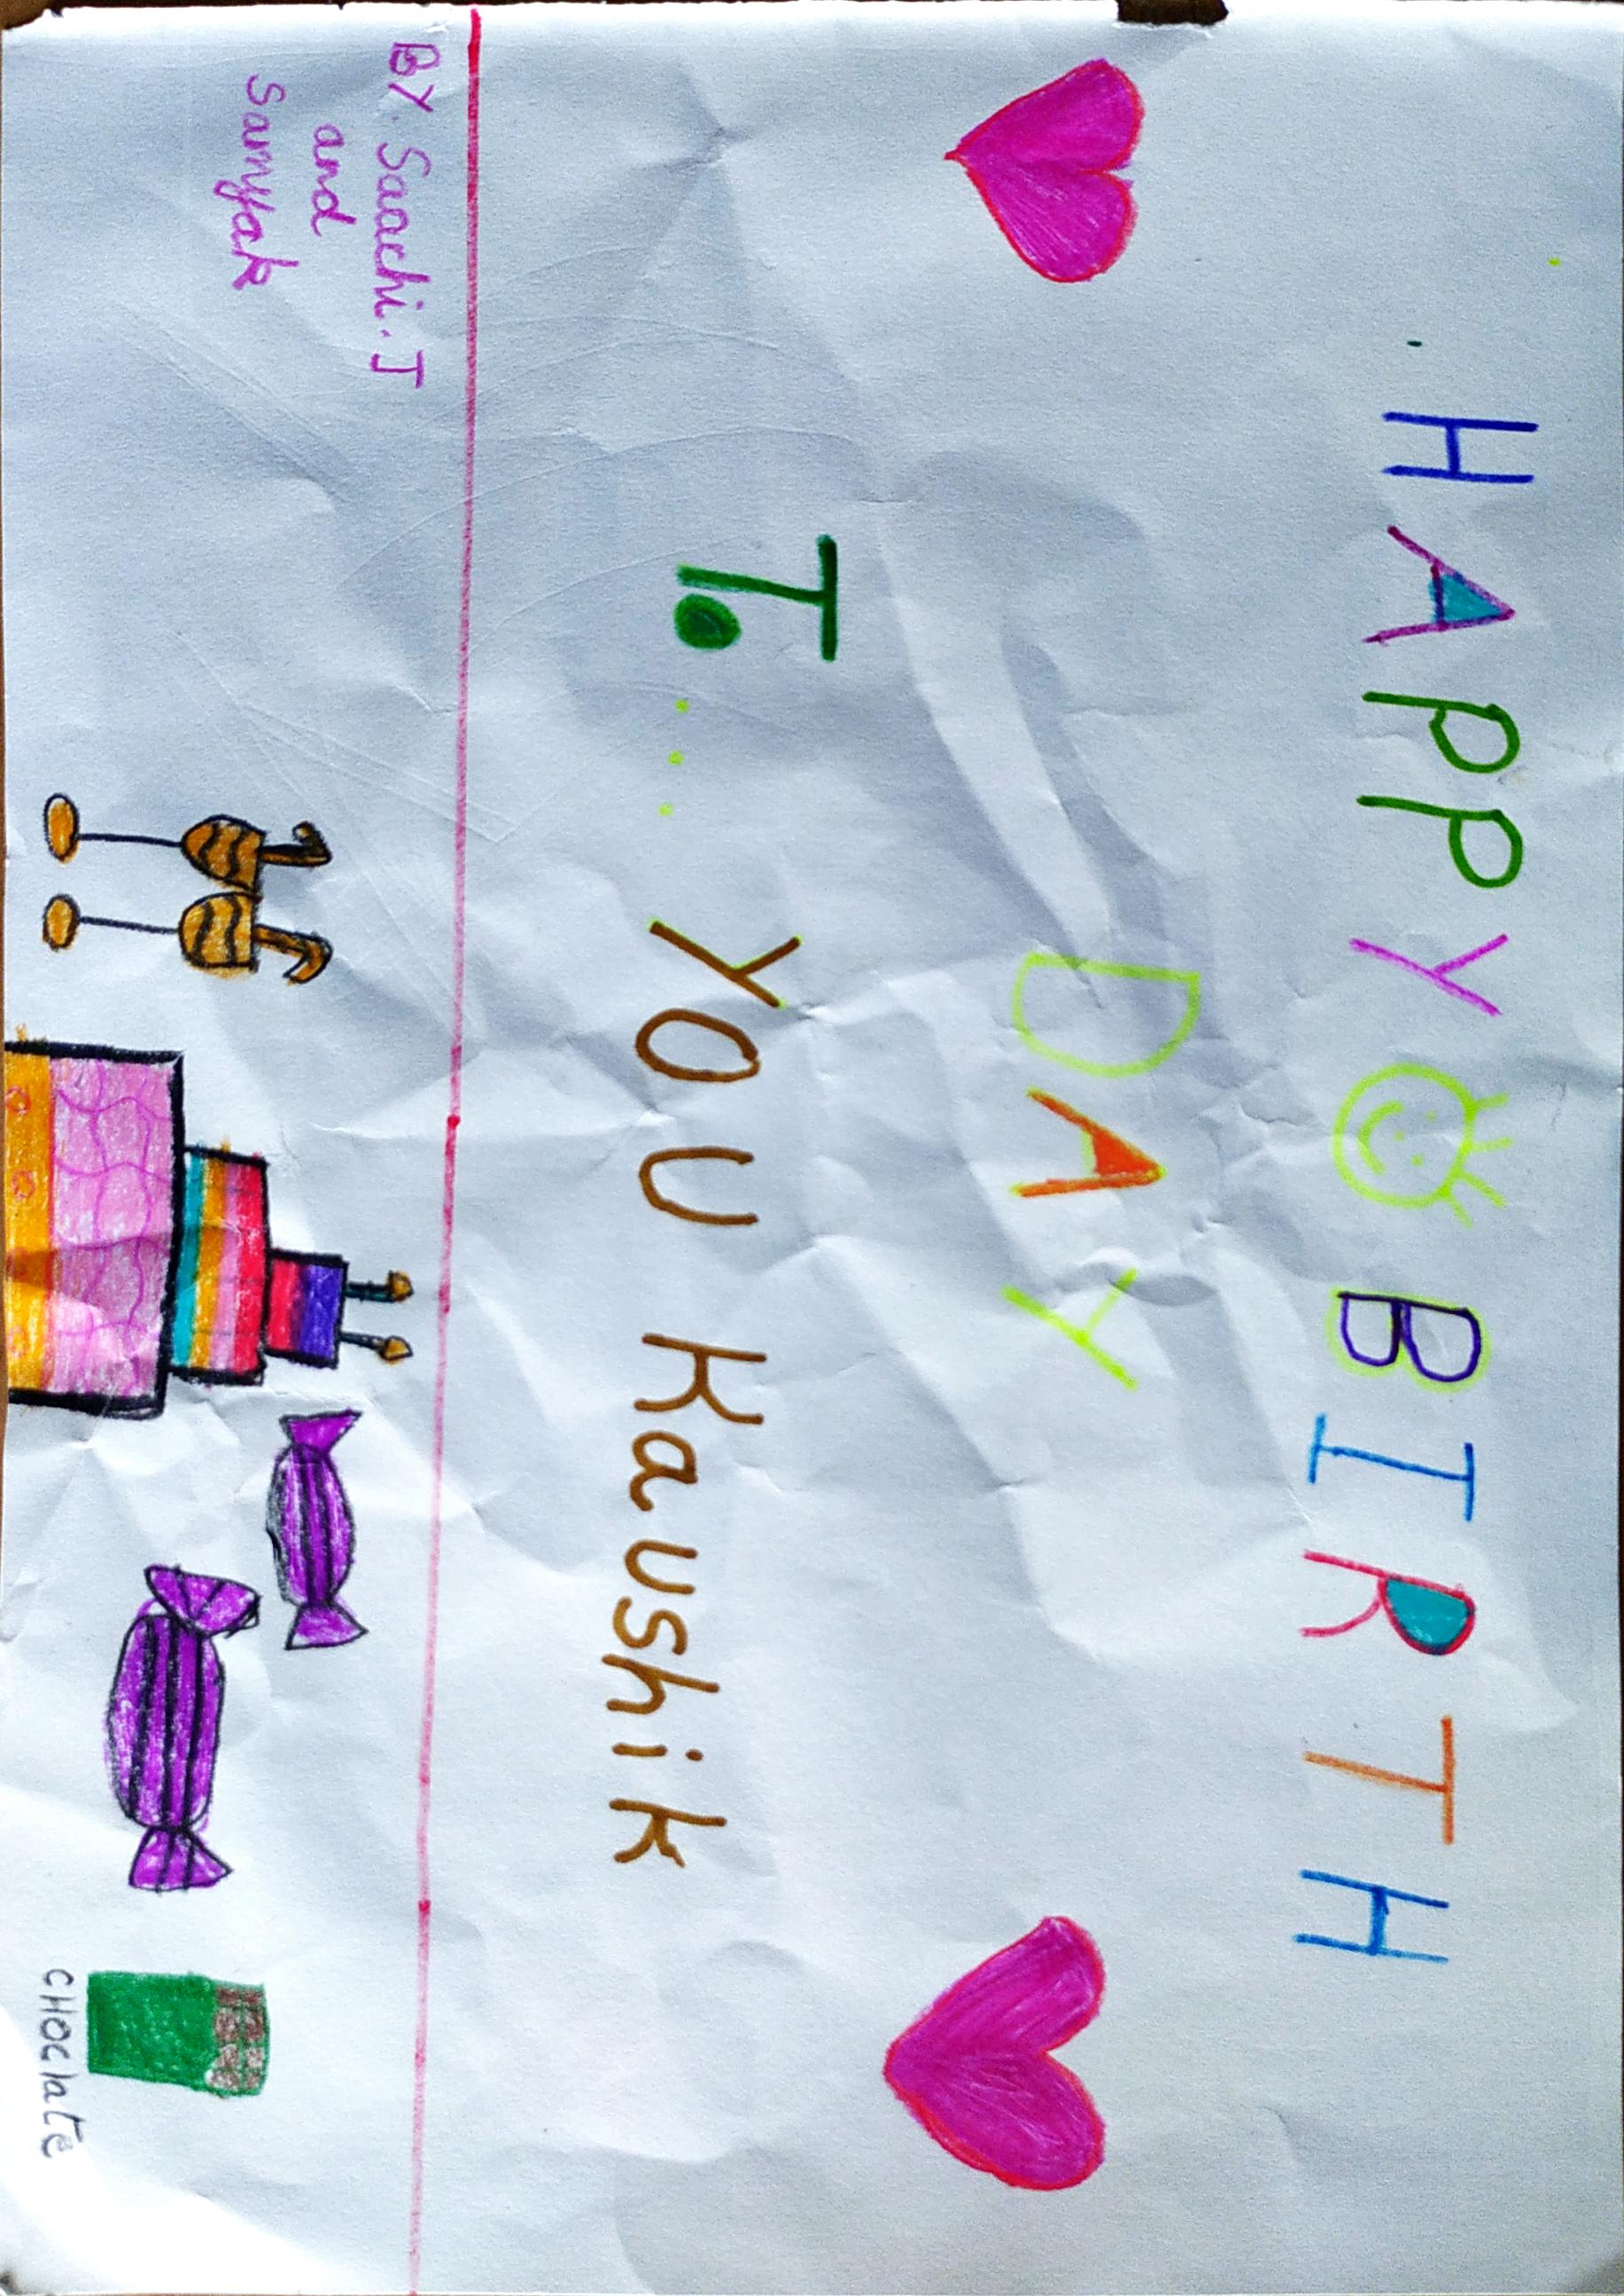 HAPPY BIRTH
DAY
To....
YOU Kaushik
BY. Saachi. J
and
Samyak
CHOClaTe